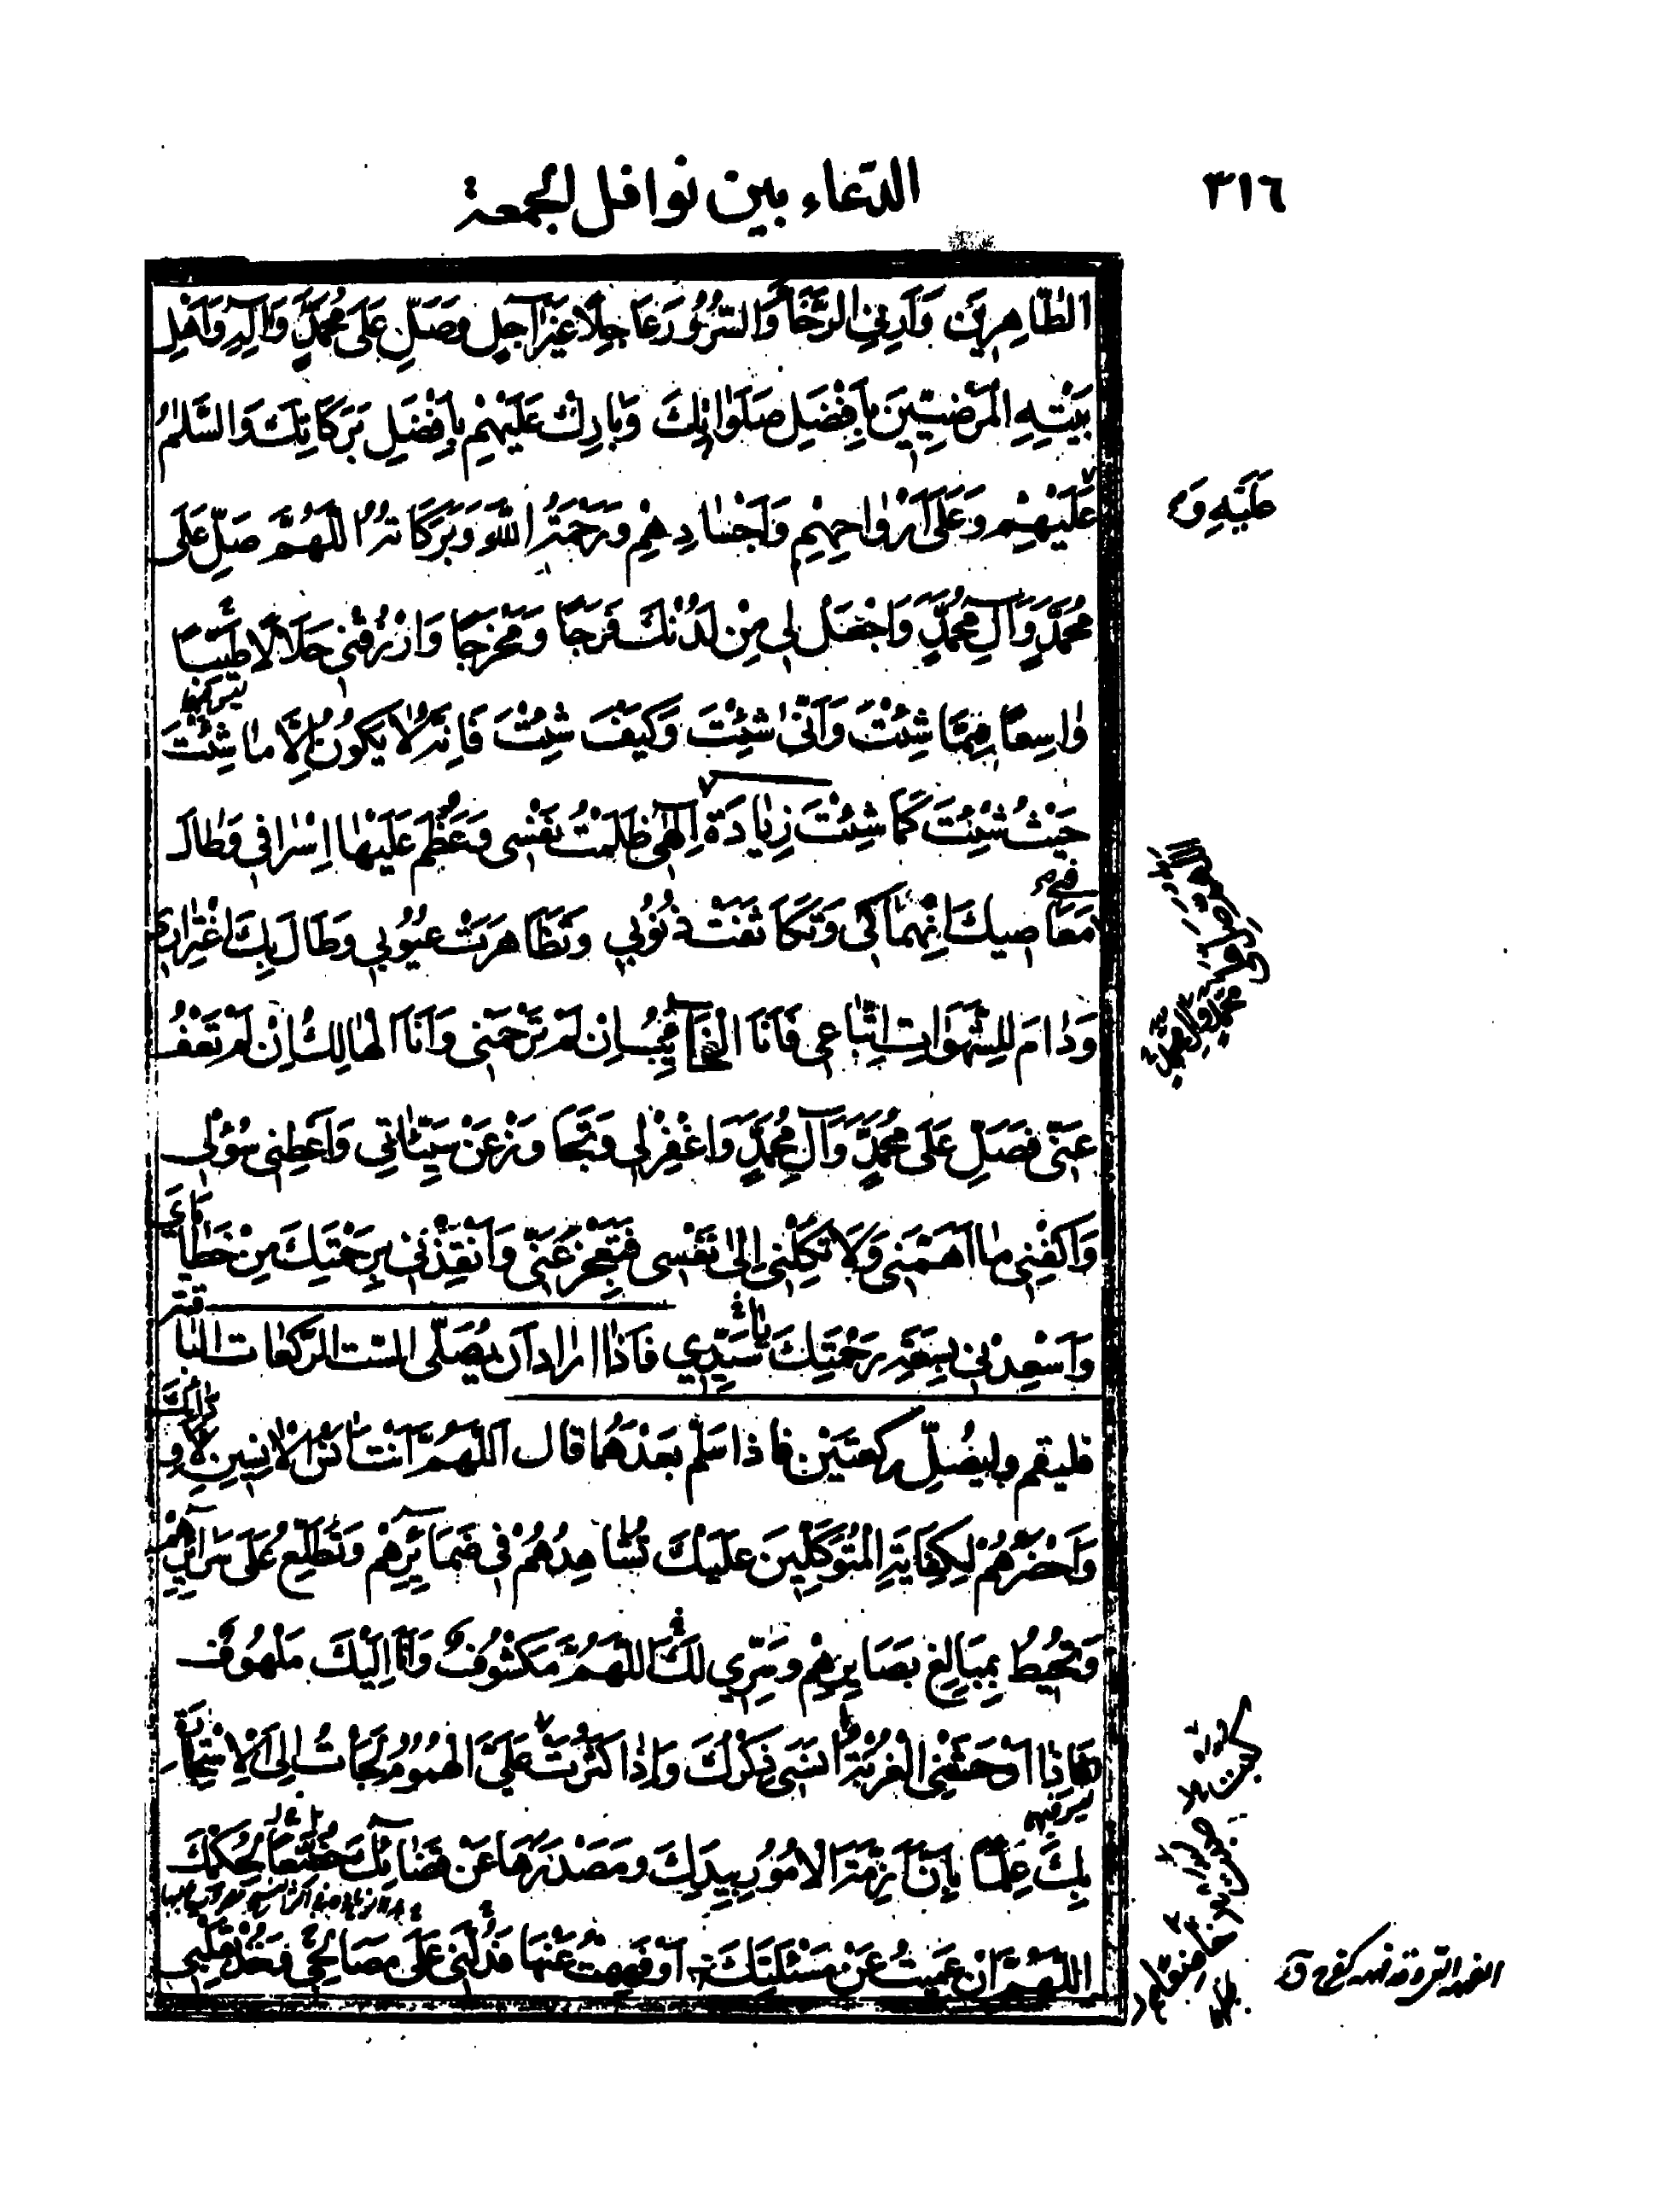 ٣١٦
الدعاء بين نوافل الجمعة
الطّاهِرِينَ وَأَرِنِي الرَّخَاءَ وَالسُّرُورَ عَاجِلًا غَيْرَ آجِلٍ وَصَلِّ عَلَى مُحَمَّدٍ وَآلِهِ وَأَهْلِ
بَيْتِهِ الْمَرْضِيِّينَ بِأَفْضَلِ صَلَوٰاتِكَ وَبٰارِكْ عَلَيْهِمْ بِأَفْضَلِ بَرَكَاتِكَ وَالسَّلٰامُ
عَلَيْهِمْ وَعَلَى أَرْوٰاحِهِمْ وَأَجْسٰادِهِمْ وَرَحْمَةُ اللَّهِ وَبَرَكَاتُهُ اللَّهُمَّ صَلِّ عَلَى
مُحَمَّدٍ وَآلِ مُحَمَّدٍ وَاجْعَلْ لِي مِنْ لَدُنْكَ فَرَجًا وَمَخْرَجًا وَارْزُقْنِي حَلَالًا طَيِّبًا
وٰاسِعًا مِمَّا شِئْتَ وَأَنّىٰ شِئْتَ وَكَيْفَ شِئْتَ فَإِنَّهُ لٰا يَكُونُ إِلَّا مٰا شِئْتَ
حَيْثُ شِئْتَ كَمَا شِئْتَ زِيٰادَة إِلٰهِي ظَلَمْتُ نَفْسِي وَعَظُمَ عَلَيْهٰا إِسْرٰافِي وَطٰالَ
فِي مَعَاصِيكَ انْهِمَاكِي وَتَكَاثَفَتْ ذُنُوبِي وَتَظَاهَرَتْ عُيُوبِي وَطَالَ بِكَ اغْتِرٰارِي
وَدٰامَ لِلشَّهَوَاتِ اتِّبٰاعِي فَأَنَا الْخَائِبُ إِنْ لَمْ تَرْحَمْنِي وَأَنَا الْهٰالِكُ إِنْ لَمْ تَعْفُ
عَنِّي فَصَلِّ عَلَى مُحَمَّدٍ وَآلِ مُحَمَّدٍ وَاغْفِرْ لِي وَتَجَاوَزْ عَنْ سَيِّئٰاتِي وَأَعْطِنِي سُؤْلِي
وَاكْفِنِي مٰا أَهَمَّنِي وَلَا تَكِلْنِي إِلىٰ نَفْسِي فَتَعْجِزَ عَنِّي وَأَنْقِذْنِي بِرَحْمَتِكَ مِنْ خَطٰايَايَ
وَأَسْعِدْنِي بِسَعَةِ رَحْمَتِكَ يٰا سَيِّدِي فَاذٰا ارٰاد أن يُصَلّى الست الرّكعٰات الثٰانية
فليقم وليصُلِّ ركعتَيْن فاذا سَلَّم بعَدهُما قال اللّٰهُمَّ أَنْتَ آنَسُ الْآنِسِينَ لِأَوِدّٰائِكَ
وَأَحْضَرُهُمْ لِكِفَايَةِ الْمُتَوَكِّلِينَ عَلَيْكَ تُشٰاهِدُهُمْ فِي ضَمَائِرِهِمْ وَتَطَّلِعُ عَلَى سَرَائِرِهِمْ
وَتُحِيطُ بِمَبَالِغِ بَصَايِرِهِمْ وَسِرِّي لَكَ اللَّهُمَّ مَكْشُوفٌ وَأَنَا إِلَيْكَ مَلْهُوفٌ
فَإِذٰا أَوْحَشَتْنِي الْغُرْبَةُ آنَسَنِي ذِكْرُكَ وَإِذٰا كَثُرَتْ عَلَيَّ الْهُمُومُ لَجَأْتُ إِلَى الْاسْتِجَارَةِ
بِكَ عِلْمًا بِأَنَّ أَزِمَّةَ الْأُمُورِ بِيَدِكَ وَمَصْدَرَهَا عَنْ قَضَائِكَ خُضَّعًا لِحُكْمِكَ
اللّٰهُمَّ إِنْ عَمِيتُ عَنْ مَسْئَلَتِكَ أَوْ فَهِهْتُ عَنْهَا فَدُلَّنِي عَلَى مَصَالِحِي وَخُذْ بِقَلْبِي